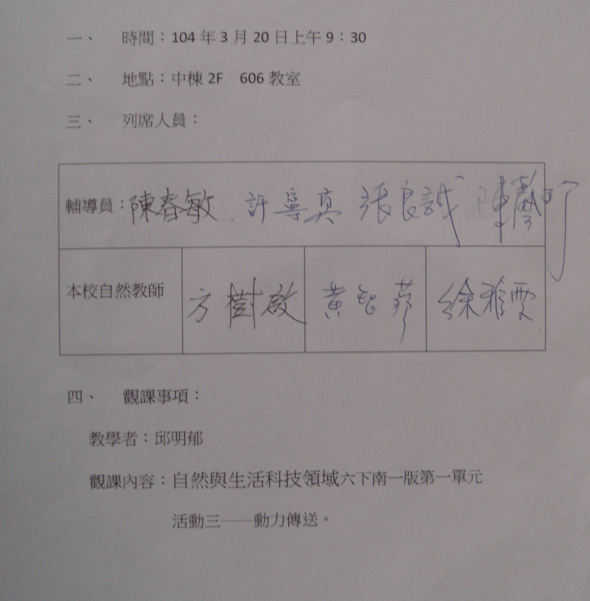 一、 時間：104 年 3 月 20 日上午 9：30
二、 地點：中棟 2F 606 教室
三、 列席人員：
輔導員：陳春敏、許寧真 張良誠 陳馨
本校自然教師 方樹啟 黃 徐雅雯
四、 觀課事項：
教學者：邱明郁
觀課內容：自然與生活科技領域六下南一版第一單元
活動三──動力傳送。